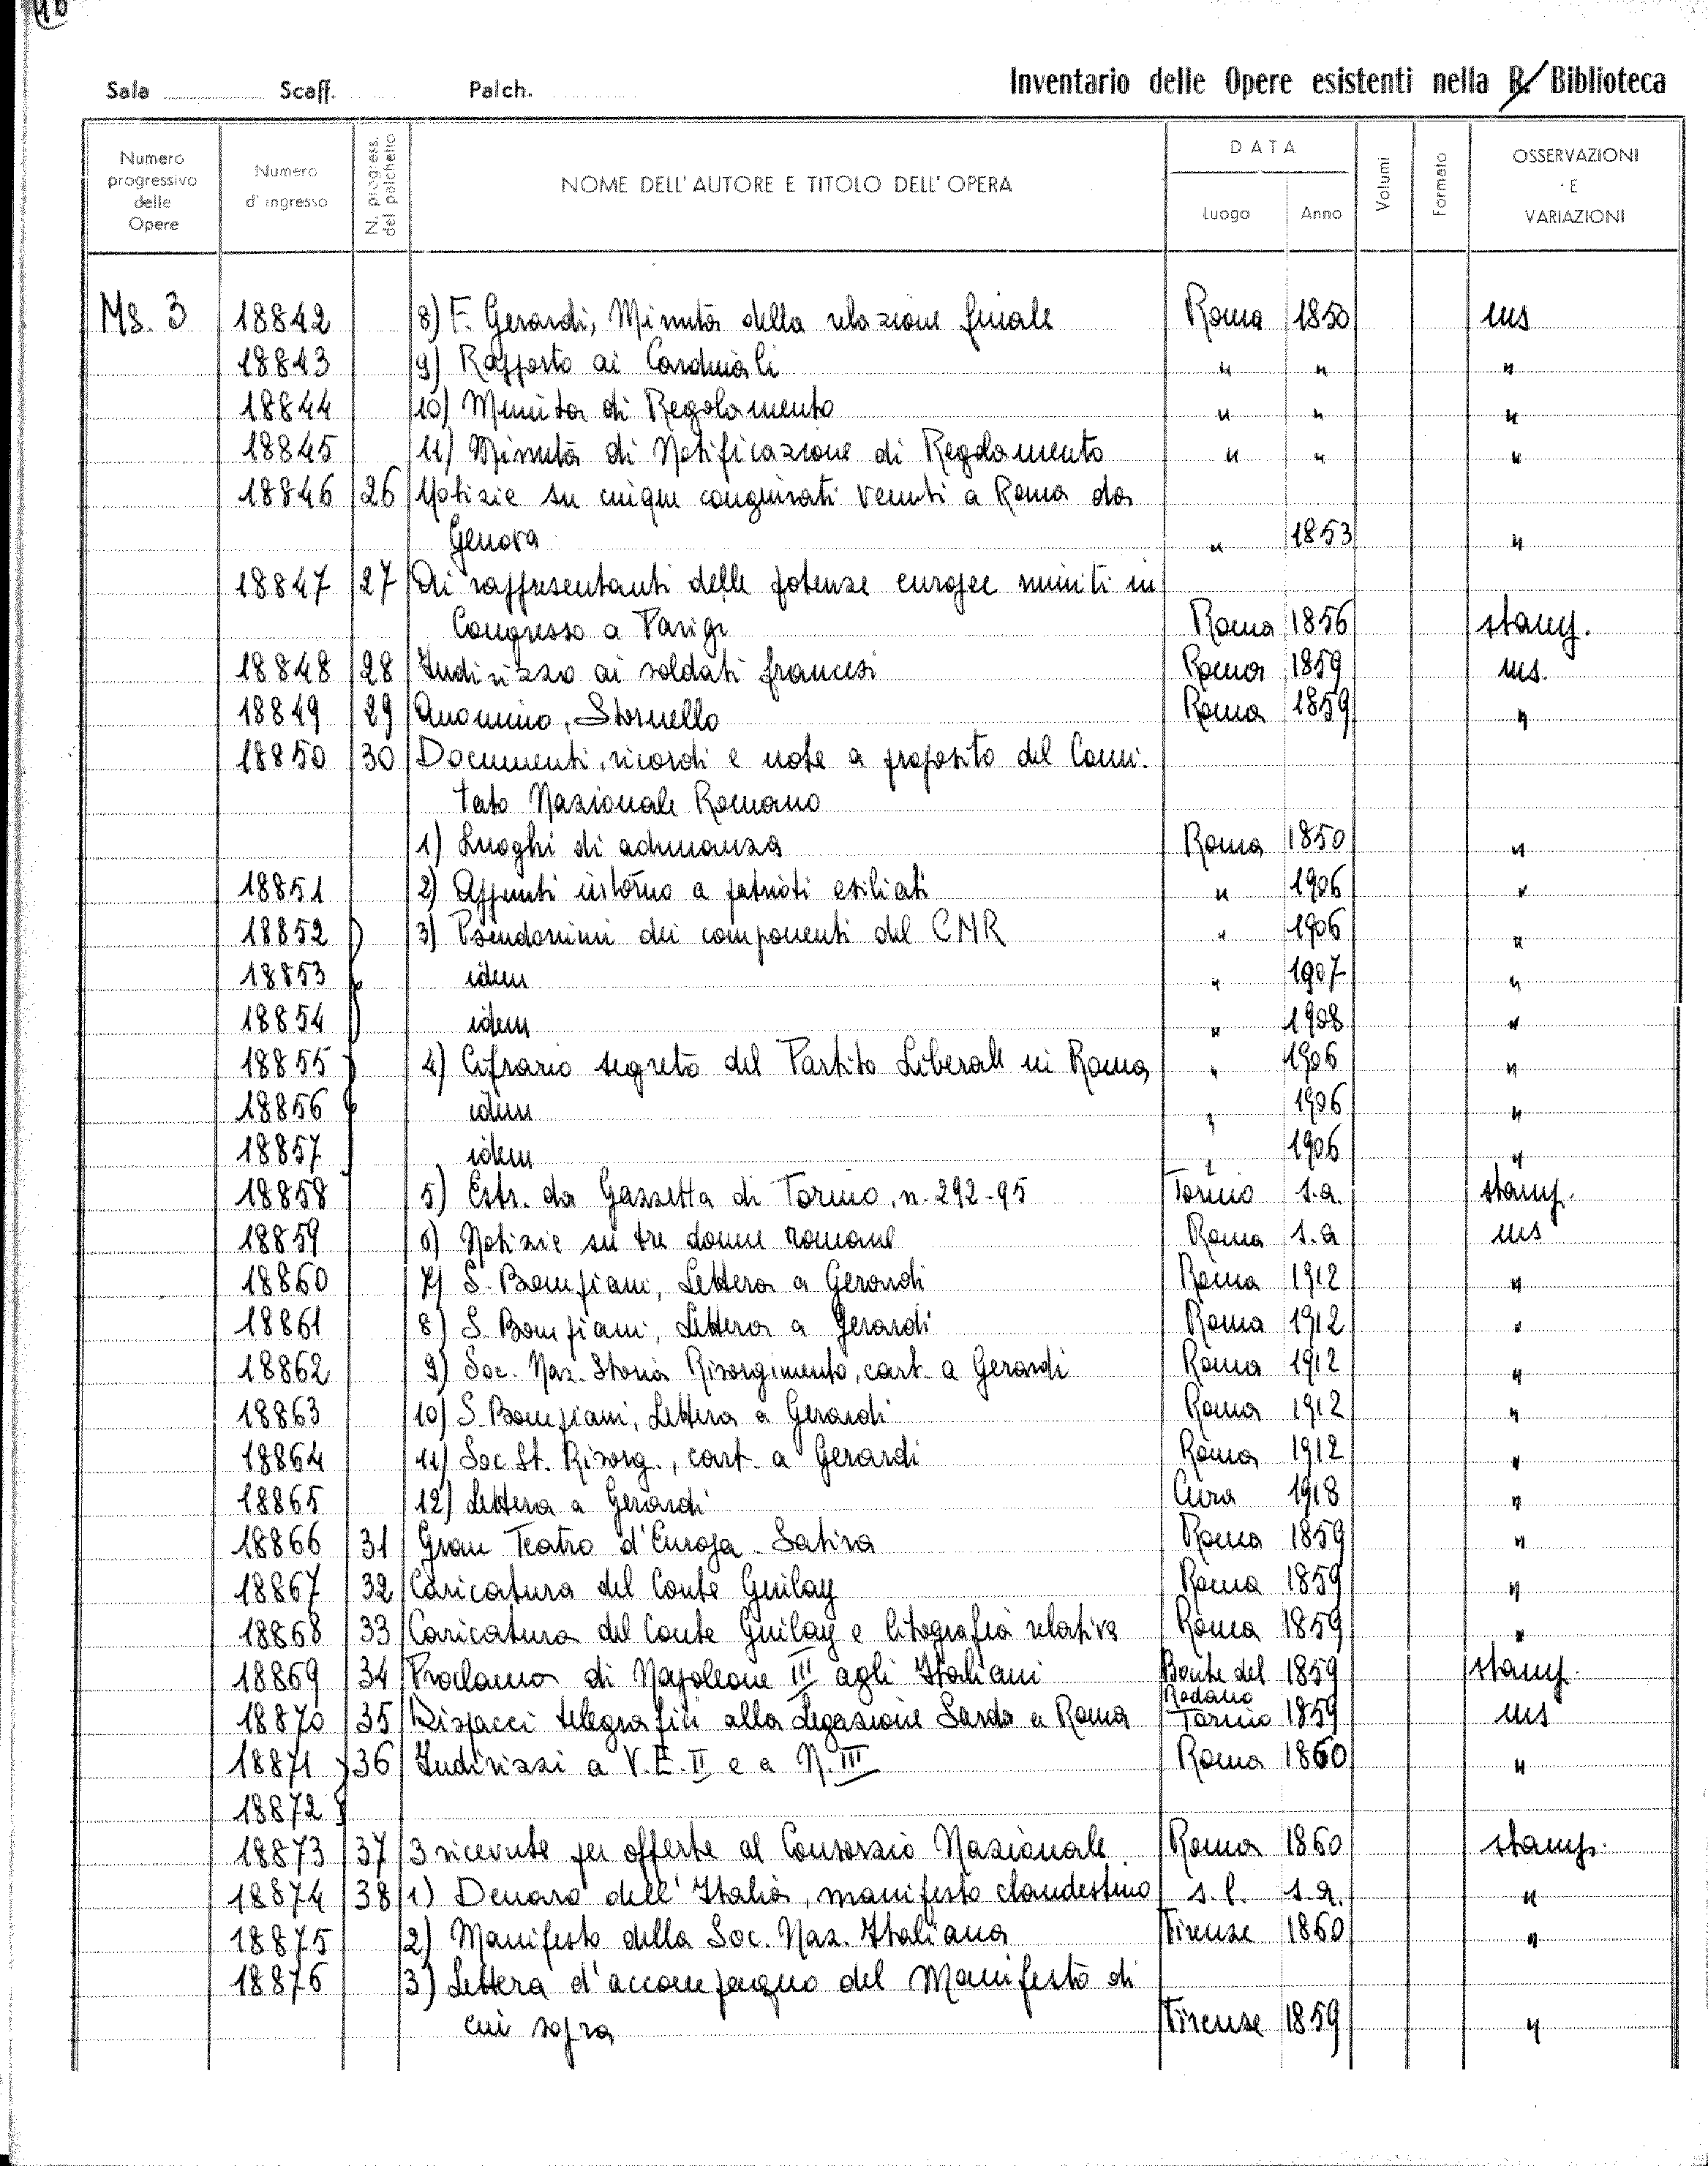 Sala Scaff. Palch. Inventario delle Opere esistenti nella R. Biblioteca
Numero progressivo delle Opere
Numero d'ingresso
N. progress. del palchetto
NOME DELL'AUTORE E TITOLO DELL'OPERA
DATA
Luogo Anno
Volumi
Formato
OSSERVAZIONI E VARIAZIONI
Ms. 3 18842 8) F. Gerardi, Minuta della relazione finale Roma 1850 ms
18843 9) Rapporto ai Cardinali " " "
18844 10) Minuta di Regolamento " " "
18845 11) Minuta di Notificazione di Regolamento " " "
18846 26 Notizie su cinque congiurati venuti a Roma da
Genova " 1853 "
18847 27 Ai rappresentanti delle potenze europee riuniti in
Congresso a Parigi Roma 1856 stamp.
18848 28 Indirizzo ai soldati francesi Roma 1859 ms.
18849 29 Anonimo, Stornello Roma 1859 "
18850 30 Documenti, ricordi e note a proposito del Comi-
tato Nazionale Romano
1) Luoghi di adunanza Roma 1850 "
18851 2) Appunti intorno a patrioti esiliati " 1906 "
18852 3) Pseudonimi dei componenti del CNR " 1906 "
18853 idem " 1907 "
18854 idem " 1908 "
18855 4) Cifrario segreto del Partito Liberale in Roma " 1906 "
18856 idem " 1906 "
18857 idem " 1906 "
18858 5) Estr. da Gazzetta di Torino, n. 292-95 Torino s.a. stamp.
18859 6) Notizie su tre donne romane Roma s.a ms
18860 7) S. Bompiani, Lettera a Gerardi Roma 1912 "
18861 8) S. Bompiani, Lettera a Gerardi Roma 1912 "
18862 9) Soc. Naz. Storia Risorgimento, cart. a Gerardi Roma 1912 "
18863 10) S. Bompiani, Lettera a Gerardi Roma 1912 "
18864 11) Soc. St. Risorg., cart. a Gerardi Roma 1912 "
18865 12) Lettera a Gerardi 1918 "
18866 31 Gran Teatro d'Europa - Satira Roma 1859 "
18867 32 Caricatura del Conte Guilay Roma 1859 "
18868 33 Caricatura del Conte Guilay e litografia relativa Roma 1859 "
18869 34 Proclama di Napoleone III agli Italiani Bonte del 1859 stamp.
Rodano
18870 35 Dispacci telegrafici alla Legazione Sarda a Roma Torino 1859 ms
18871 36 Indirizzi a V.E. II e a N. III Roma 1860 "
18872
18873 37 3 ricevute per offerte al Consorzio Nazionale. Roma 1860 stamp.
18874 38 1) Denaro dell'Italia, manifesto clandestino s.l. s.a. "
18875 2) Manifesto della Soc. Naz. Italiana Firenze 1860 "
18876 3) Lettera d'accompagno del Manifesto di
cui sopra Firenze 1859 "